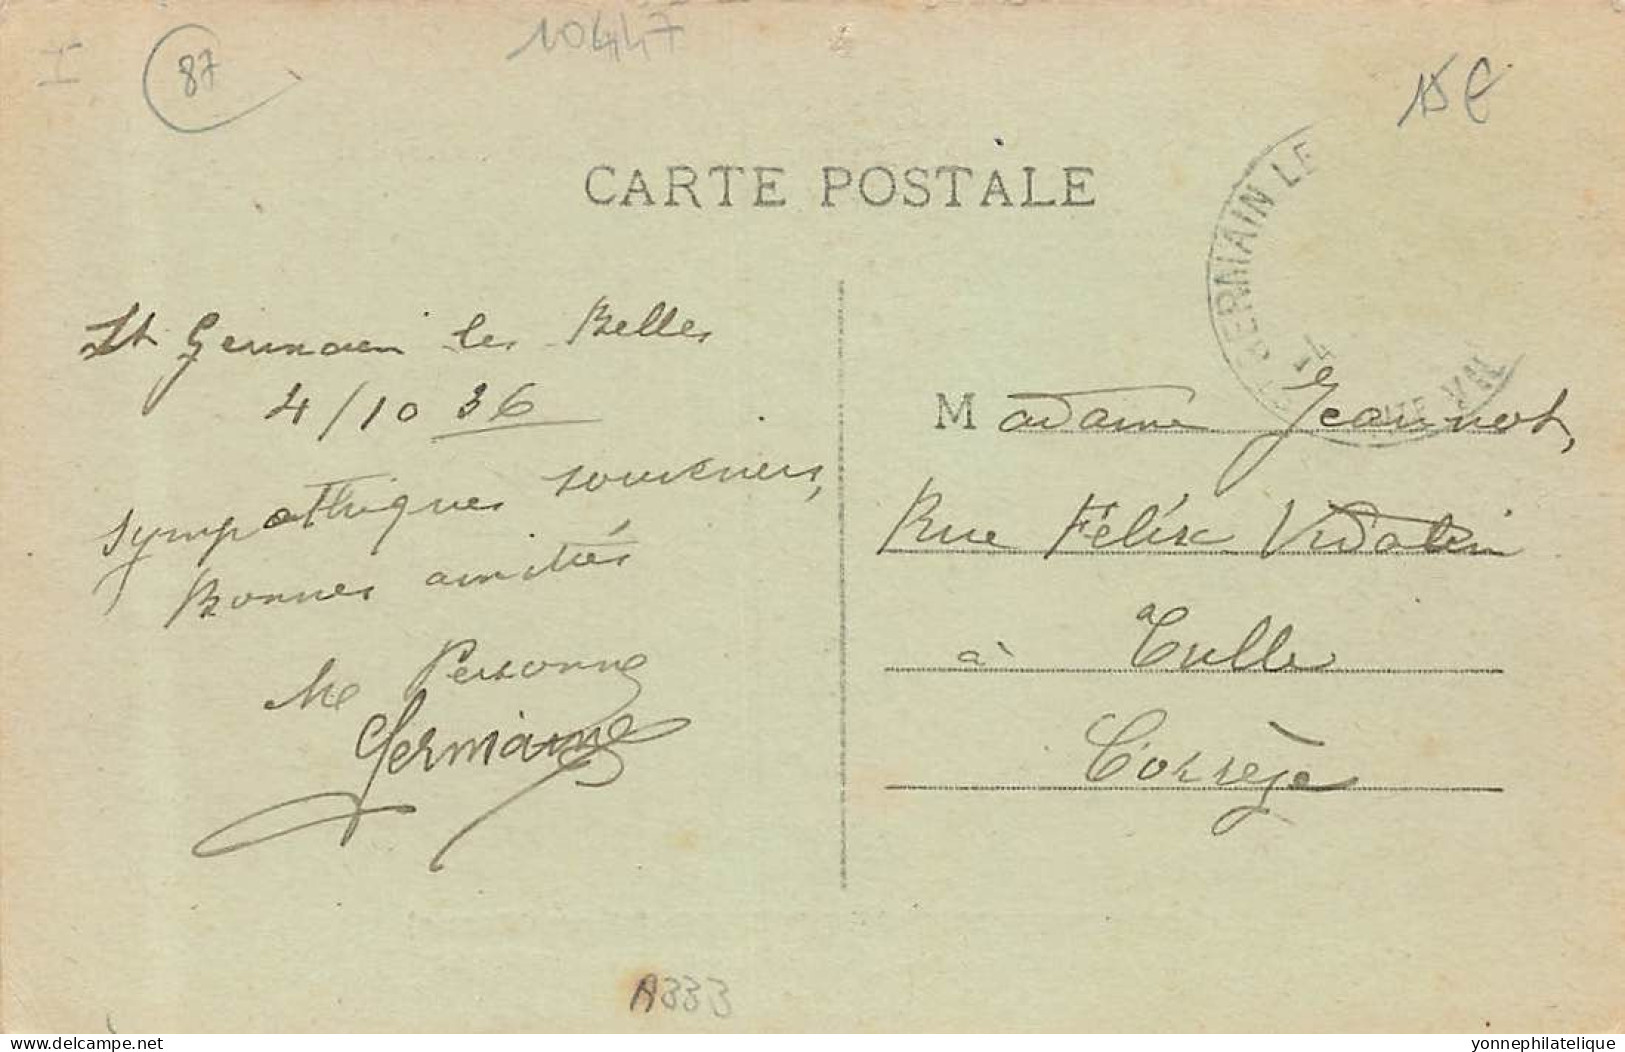 87
10447
15€
CARTE POSTALE
GERMAIN LE
St Germain les Belles
4/10 36
sympathiques souvenirs,
Bonnes amitiés
Me Personne
Germaine
Madame Jeannot,
Rue Félix Vidalin
à Tulle
Corrèze
-4
TE VN
A333
www.delcampe.net
yonnephilatelique